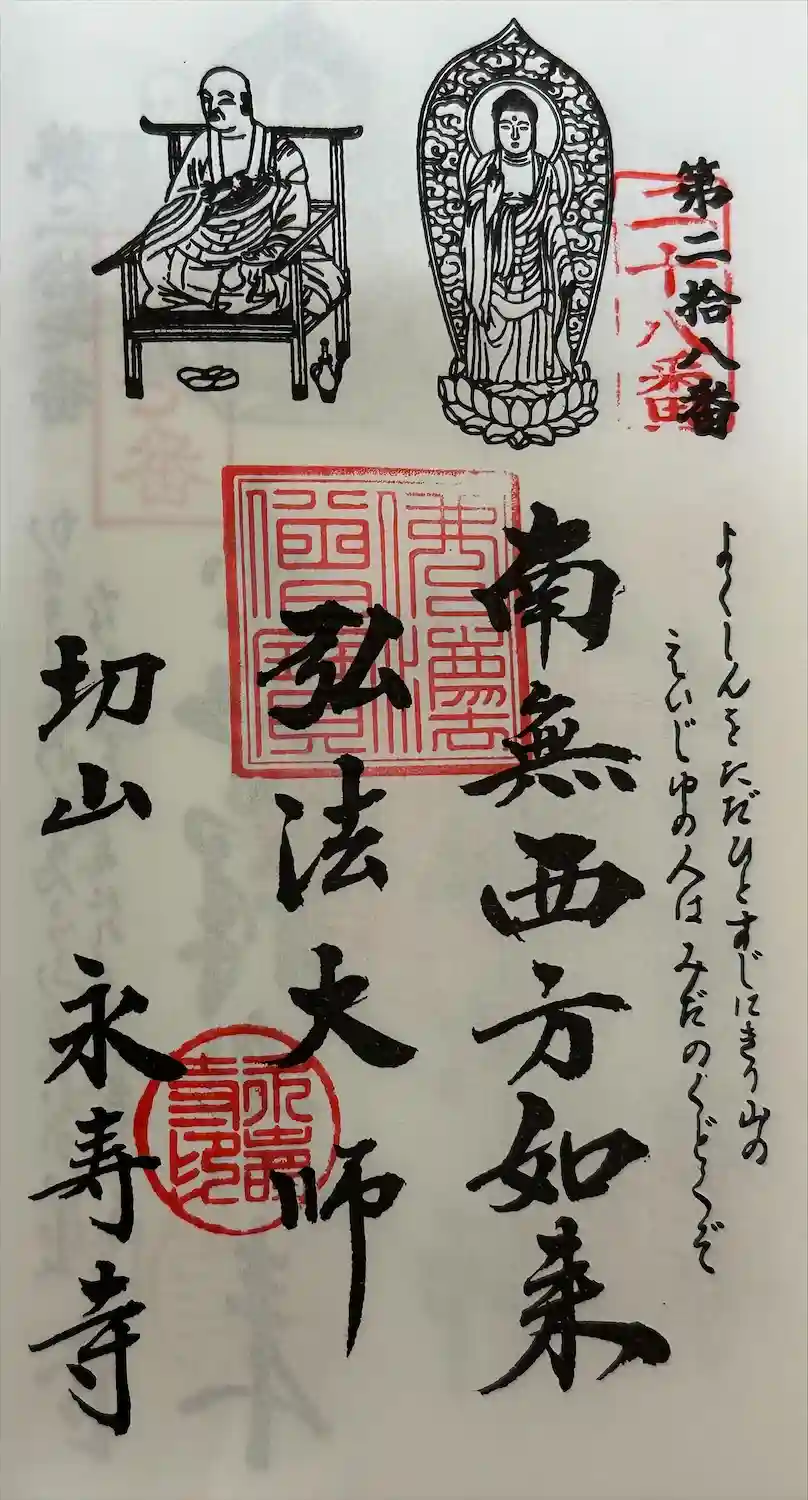 第二拾八番
二十八番
よくしんをただひとすじにきり山の
えいじゆの人はみだのくどくぞ
南無西方如来
佛法僧寶
弘法大師
永壽寺印
切山 永寿寺